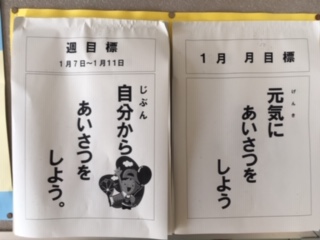 週目標
1月7日～1月11日
じぶん
自分から
あいさつを
しよう。
1月 月目標
げんき
元気に
あいさつを
しよう